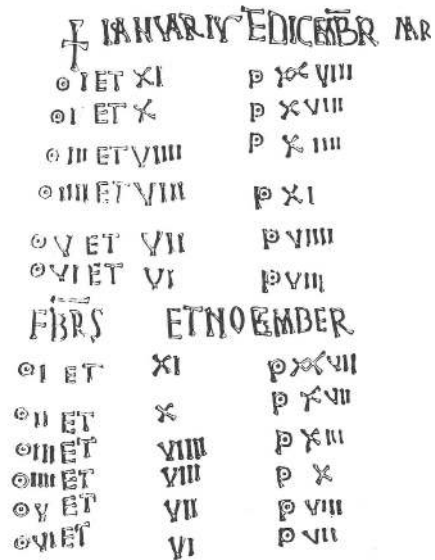 † IANVARIV EDICEMBR
⊙ I ET XI P XXVIII
⊙ I ET X P XVIII
⊙ III ET VIIII P XIIII
⊙ IIII ET VIII P XI
⊙ V ET VII P VIIII
⊙ VI ET VI P VIII
FBRS ETNOEMBER
⊙ I ET XI P XXVII
⊙ II ET X P XVII
⊙ III ET VIIII P XIII
⊙ IIII ET VIII P X
⊙ V ET VII P VIII
⊙ VI ET VI P VII